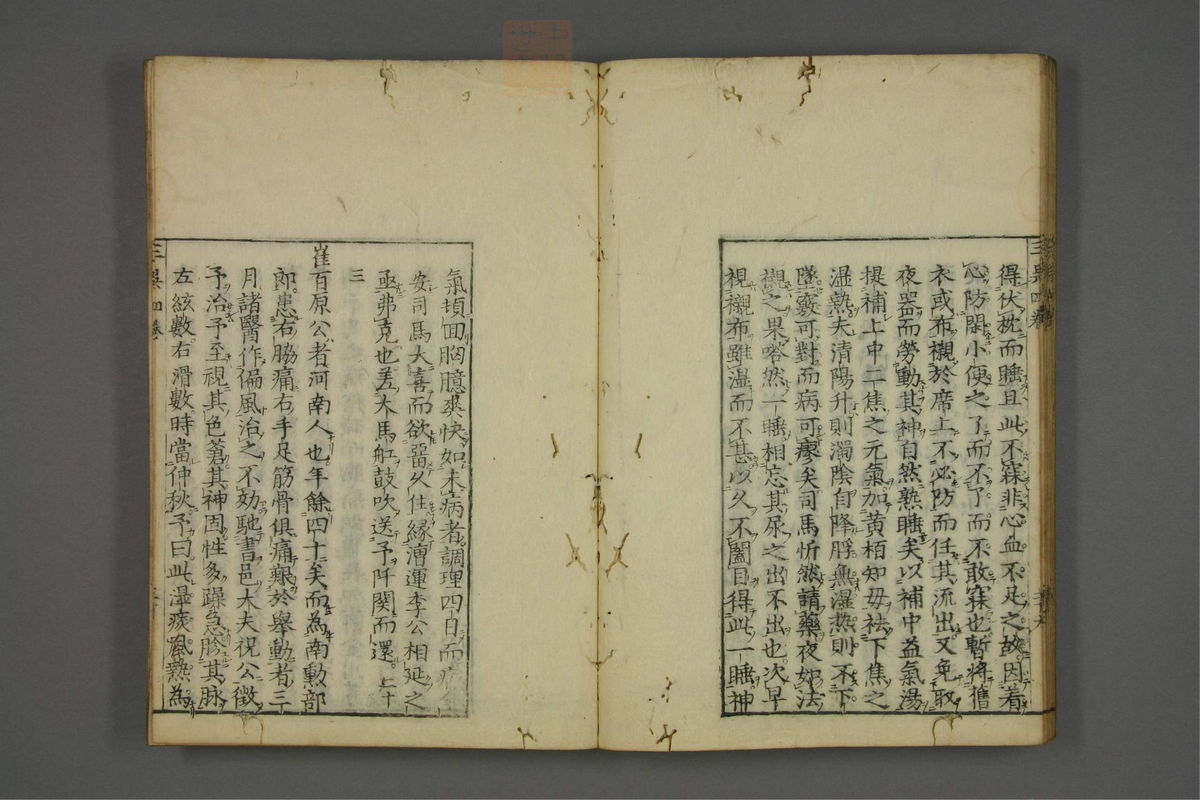 得伏枕而睡且此不寐非心血不足之故因着
心防閑小便之了而不了而不敢寐也暫將舊
衣或布襯於席上不必防而任其流出又免取
夜器而勞動其神自然熟睡矣以補中益氣湯
提補上中二焦之元氣加黄栢知母祛下焦之
湿熱夫清陽升則濁陰自降脬無湿热則不下
墜竅可對而病可瘳矣司馬忻然請藥夜如法
襯之果嗒然一睡相忘其尿之出不出也次早
視襯布雖温而不甚以久不闔目得此一睡神
氣頓囬胸臆爽快如未病者調理四日而病
安司馬大喜而欲畱久住緣漕運李公相延之
亟弗克也差大馬舡鼓吹送予阡関而還上十
三
崔百原公者河南人也年餘四十矣而為南勲部
郎患右脇痛右手足筋骨俱痛艱於舉動者三
月諸醫作偏風治之不効馳書邑大夫祝公徴
予治予至視其色蒼其神固性多躁急胗其脉
左絃數右滑數時當仲秋予曰此湿痰風熱為